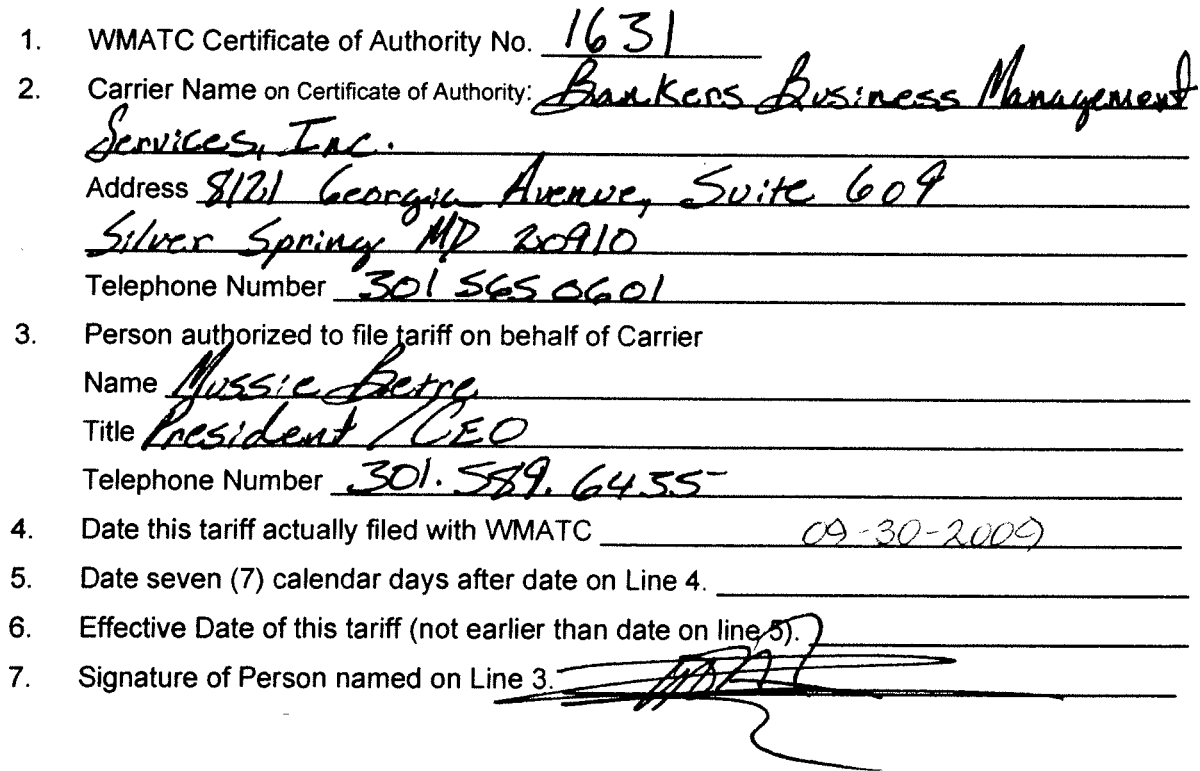 1. WMATC Certificate of Authority No. 1631
2. Carrier Name on Certificate of Authority: Bankers Business Management
Services, Inc.
Address 8121 Georgia Avenue, Suite 609
Silver Spring MD 20910
Telephone Number 301 565 0601
3. Person authorized to file tariff on behalf of Carrier
Name Mussie Betre
Title President / CEO
Telephone Number 301. 589. 6455
4. Date this tariff actually filed with WMATC 09-30-2009
5. Date seven (7) calendar days after date on Line 4.
6. Effective Date of this tariff (not earlier than date on line 5).
7. Signature of Person named on Line 3.